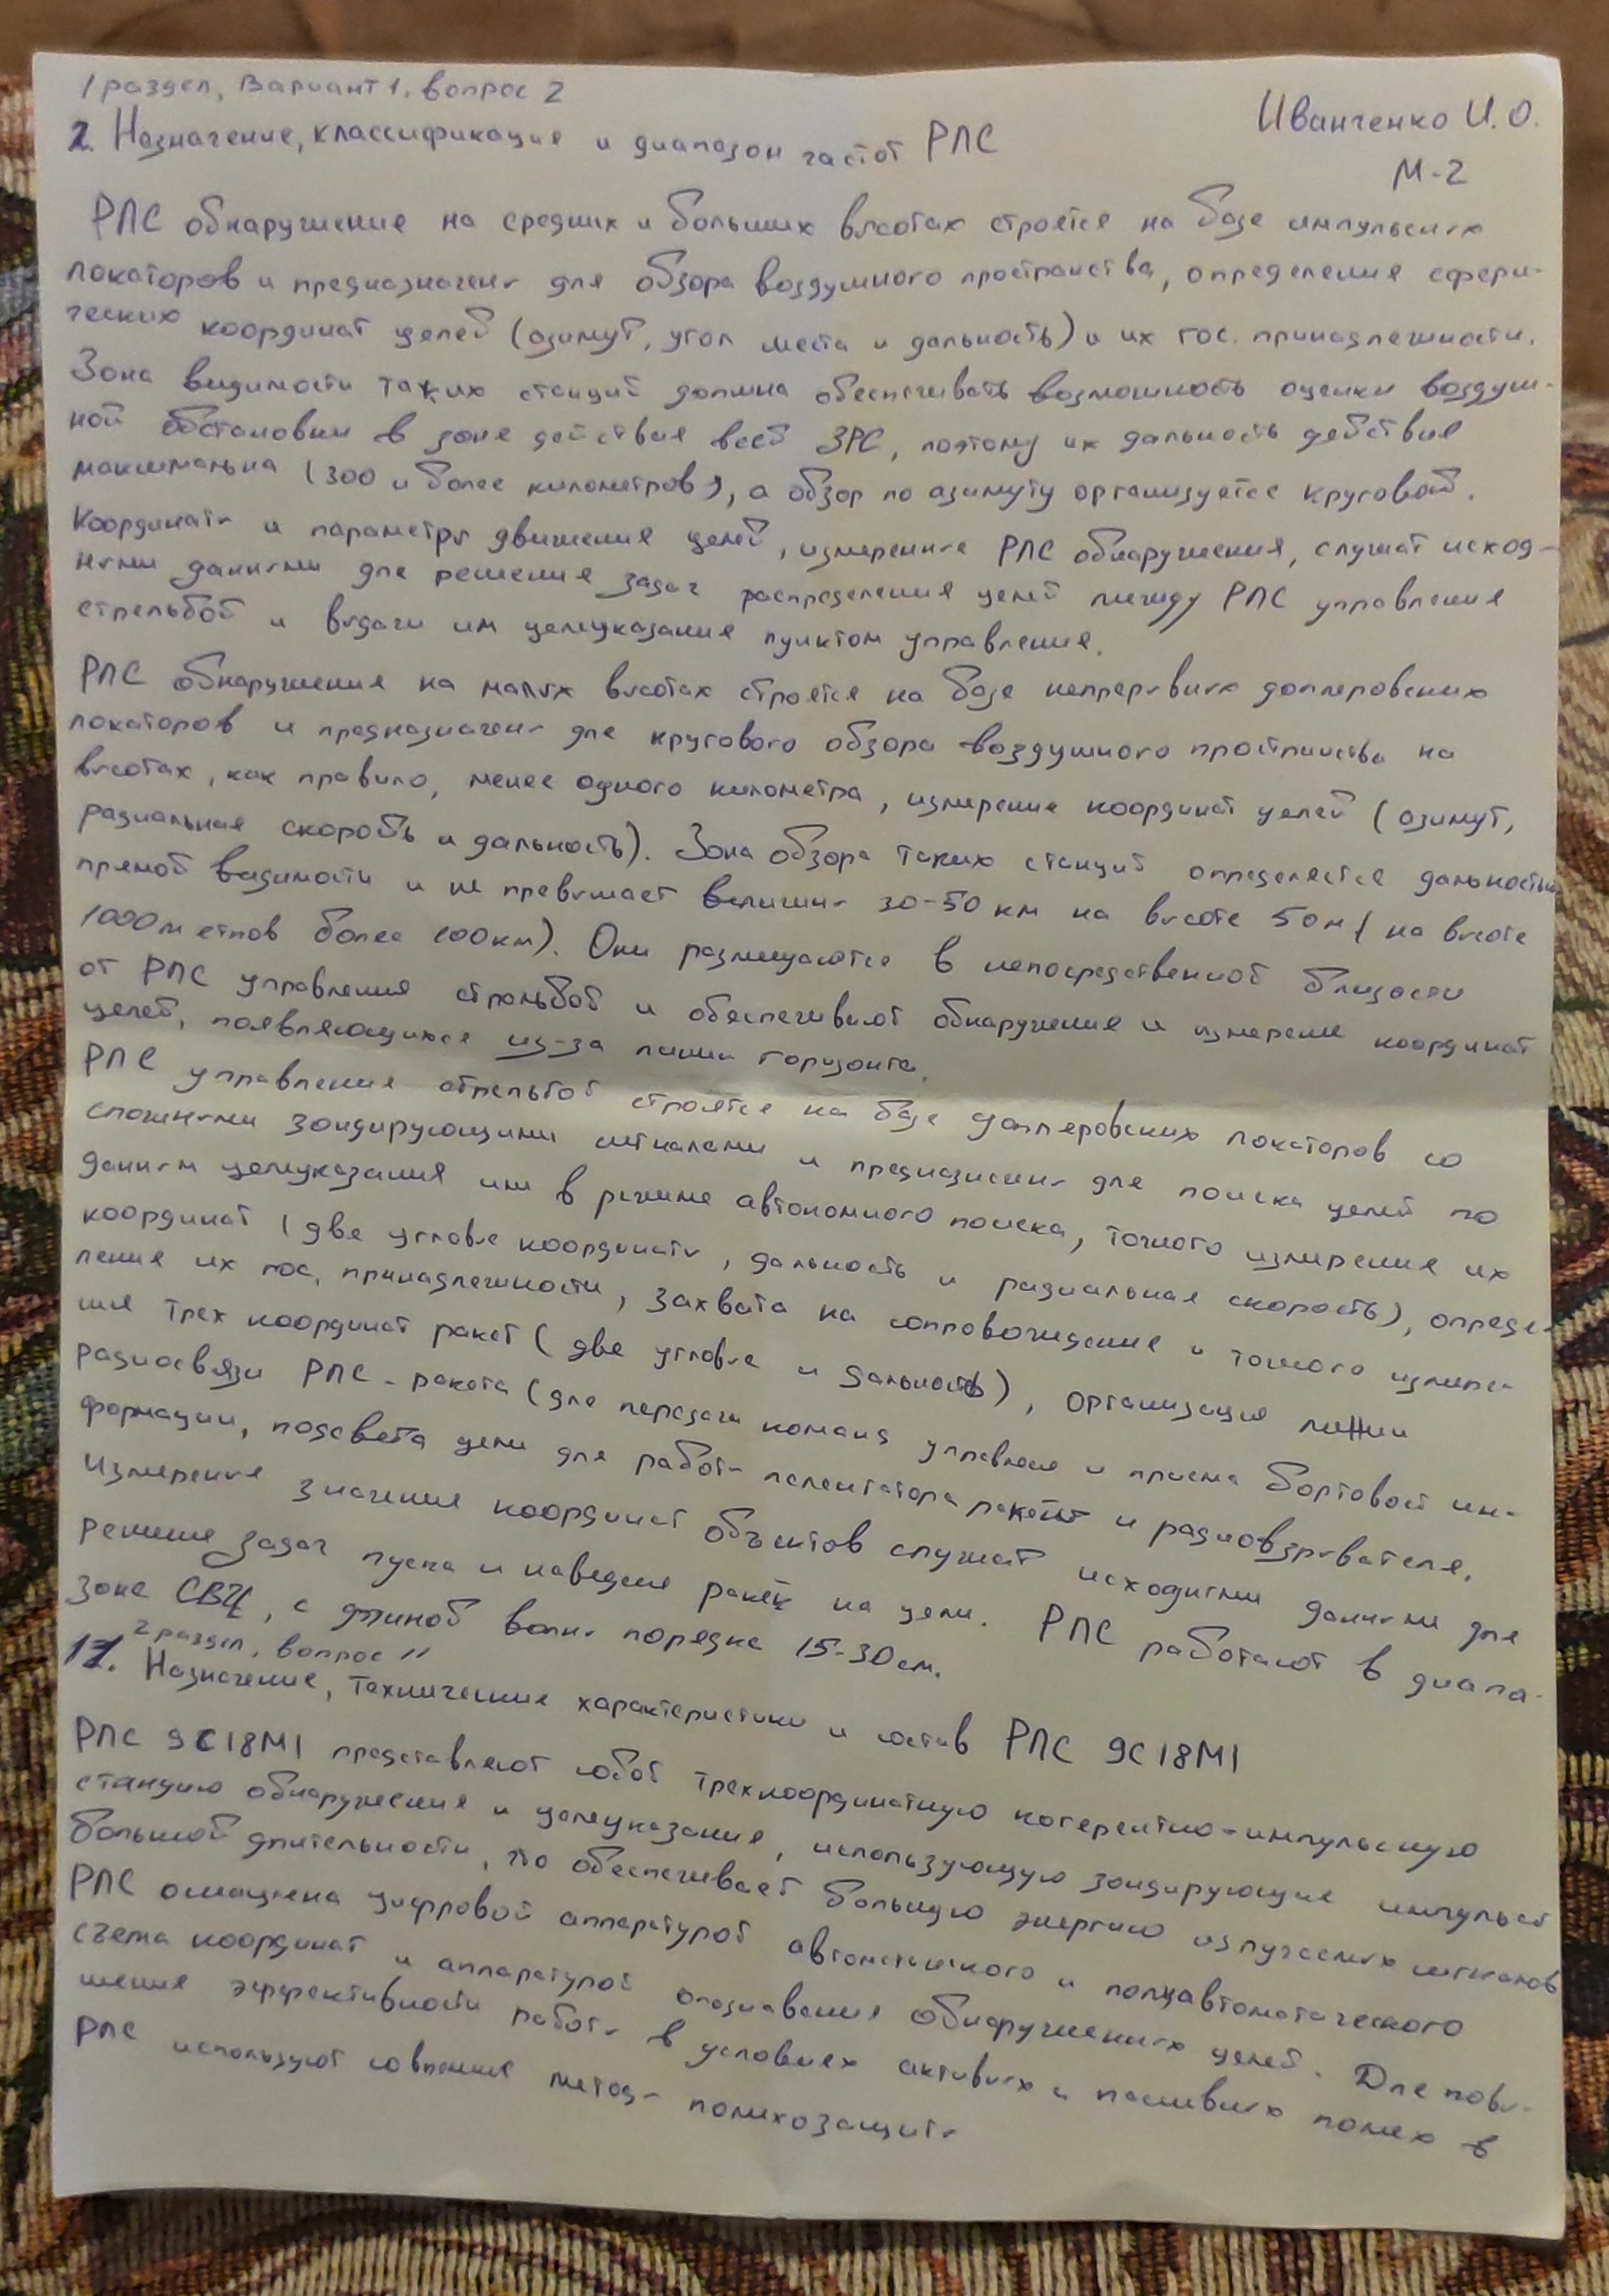 1 раздел, Вариант 1, вопрос 2
Иванченко И.О.
М-2
2. Назначение, классификация и диапазон частот РЛС
РЛС обнаружение на средних и больших высотах строятся на базе импульсных
локаторов и предназначены для обзора воздушного пространства, определения сфери-
ческих координат целей (азимут, угол места и дальность) и их гос. принадлежности.
Зона видимости таких станций должна обеспечивать возможность оценки воздуш-
ной обстановки в зоне действия всей ЗРС, поэтому их дальность действия
максимальна (300 и более километров), а обзор по азимуту организуется круговой.
Координаты и параметры движения целей, измеренные РЛС обнаружения, служат исход-
ными данными для решения задач распределения целей между РЛС управления
стрельбой и выдачи им целеуказания пунктом управления.
РЛС обнаружения на малых высотах строятся на базе непрерывных доплеровских
локаторов и предназначены для кругового обзора воздушного пространства на
высотах, как правило, менее одного километра, измерение координат целей (азимут,
радиальная скорость и дальность). Зона обзора таких станций определяется дальностью
прямой видимости и не превышает величины 30-50 км на высоте 50 м (на высоте
1000 метров более 100 км). Они размещаются в непосредственной близости
от РЛС управления стрельбой и обеспечивают обнаружение и измерение координат
целей, появляющихся из-за линии горизонта.
РЛС управления стрельбой строятся на базе доплеровских локаторов со
сложными зондирующими сигналами и предназначены для поиска целей по
данным целеуказания или в режиме автономного поиска, точного измерения их
координат (две угловые координаты, дальность и радиальная скорость), опреде-
ления их гос. принадлежности, захвата на сопровождение и точного измере-
ния трех координат ракет (две угловые и дальность), организация линии
радиосвязи РЛС - ракета (для передачи команд управления и приема бортовой ин-
формации, подсвета цели для работы пеленгатора ракеты и радиовзрывателя.
Измеренные значения координат объектов служат исходными данными для
решение задач пуска и наведения ракет на цели. РЛС работают в диапа-
зоне СВЧ, с длиной волны порядка 15-30 см.
2 раздел, вопрос 11
11. Назначение, технические характеристики и состав РЛС 9С18М1
РЛС 9С18М1 представляют собой трехкоординатную когерентно-импульсную
станцию обнаружения и целеуказания, использующую зондирующие импульсы
большой длительности, что обеспечивает большую энергию излучаемых сигналов
РЛС оснащена цифровой аппаратурой автоматического и полуавтоматического
съема координат и аппаратурой опознавания обнаруженных целей. Для повы-
шения эффективности работы в условиях активных и пассивных помех в
РЛС используют современные методы помехозащиты